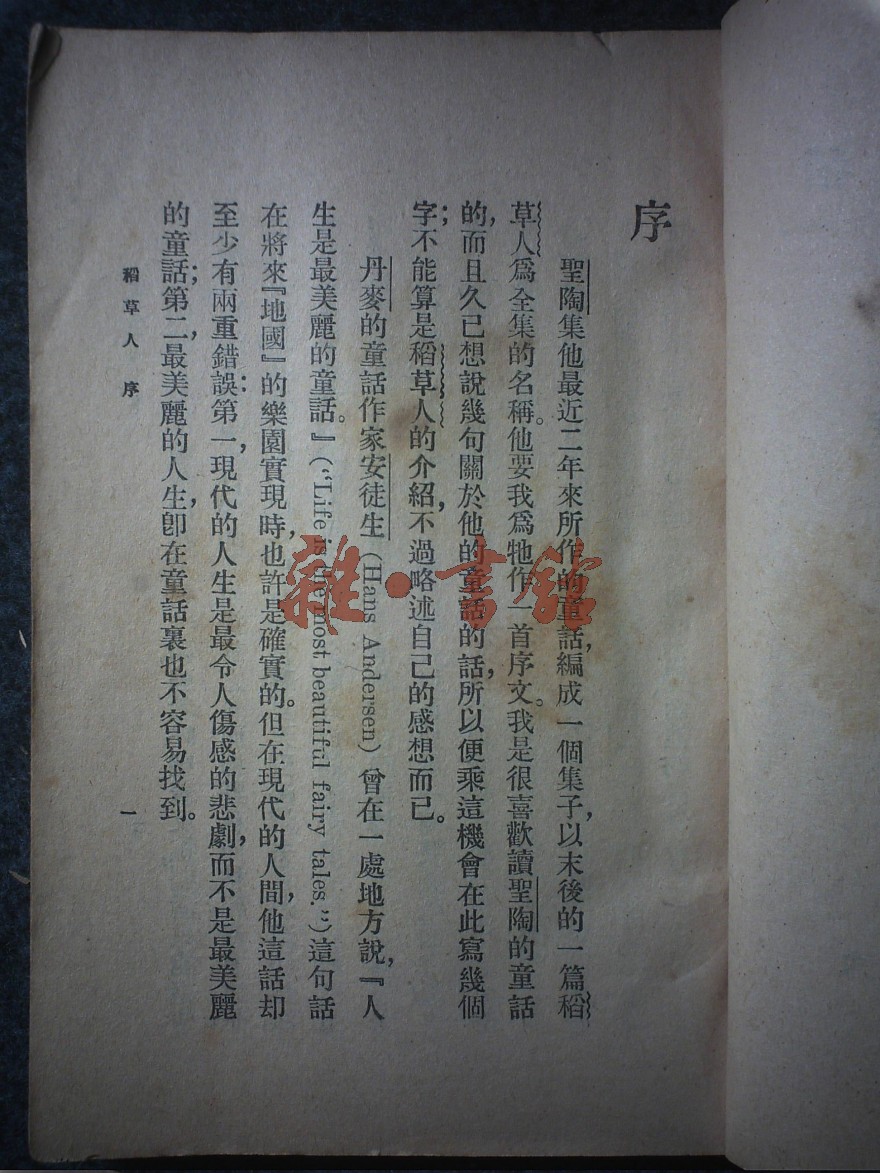 序
聖陶集他最近二年來所作的童話，編成一個集子，以末後的一篇稻
草人爲全集的名稱。他要我爲牠作一首序文。我是很喜歡讀聖陶的童話
的，而且久已想說幾句關於他的童話的話，所以便乘這機會在此寫幾個
字；不能算是稻草人的介紹，不過略述自己的感想而已。
丹麥的童話作家安徒生（Hans Andersen）曾在一處地方說，『人
生是最美麗的童話。』（“Life is the most beautiful fairy tales.”）這句話
在將來『地國』的樂園實現時，也許是確實的。但在現代的人間，他這話却
至少有兩重錯誤：第一，現代的人生是最令人傷感的悲劇，而不是最美麗
的童話；第二，最美麗的人生，卽在童話裏也不容易找到。
稻草人 序
一
雜·書館